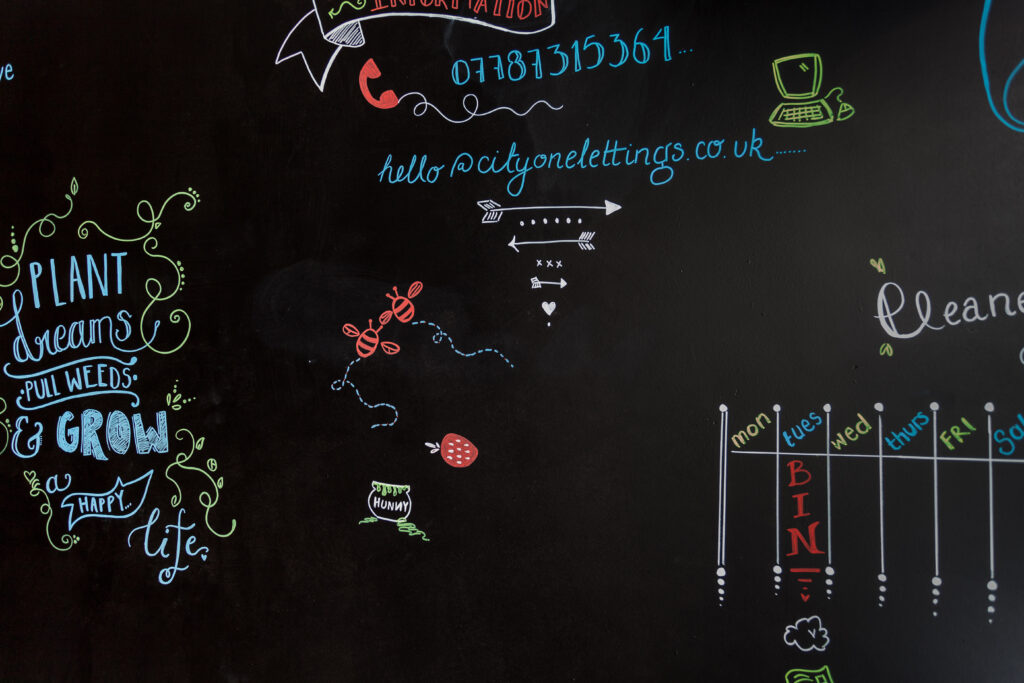 INFORMATION
07787315364...
hello@cityonelettings.co.uk.......
PLANT
dreams
PULL WEEDS
& GROW
a
HAPPY...
life
HUNNY
mon tues wed thurs FRI
BIN